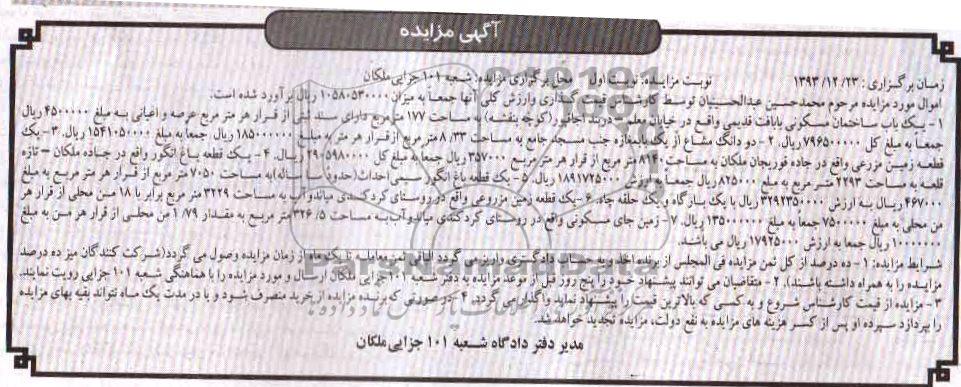 آگهی مزایده
زمان برگزاری : ۱۳۹۳/۱۲/۲۳ نوبت مزایده: نوبت اول محل برگزاری مزایده: شعبه ۱۰۱ جزایی ملکان
اموال مورد مزایده مرحوم محمدحسین عبدالحسینیان توسط کارشناس قیمت گذاری وارزش کلی آنها جمعاً به میزان ۱۰۵۸۰۵۳۰۰۰۰ ریال برآورد شده است.
۱ - یک باب ساختمان مسکونی بابافت قدیمی واقع در خیابان معلم - دربند آجانلور (کوچه بنفشه) به مساحت ۱۷۷ مترمربع دارای سند ثبتی از قرار هر متر مربع عرصه و اعیانی به مبلغ ۴۵۰۰۰۰۰ ریال
جمعاً به مبلغ کل ۷۹۶۵۰۰۰۰۰ ریال. ۲ - دو دانگ مشاع از یک بالمغازه جنب مسجد جامع به مساحت ۸/۳۳ متر مربع ازقرار هر متر به مبلغ ریال جمعاً به مبلغ ۱۵۴۱۰۵۰۰۰۰ ریال. ۳ - یک
قطعه زمین مزرعی واقع در جاده قوریجان ملکان به مساحت ۸۱۴۰ متر مربع از قرار هر متر مربع ۳۵۷۰۰۰ ریال جمعاً به مبلغ کل ۲۹۰۵۹۸۰۰۰۰ ریال. ۴ - یک قطعه باغ انگور واقع در جاده ملکان – تازه
قلعه به مساحت ۲۲۹۳ متر مربع به مبلغ ۸۲۵۰۰۰ ریال جمعاً به ارزش ۱۸۹۱۷۲۵۰۰۰ ریال. ۵ - یک قطعه باغ انگور احداث (حدود ساله) به مساحت ۷۰۵۰ متر مربع از قرار هر متر مربع به مبلغ
۴۶۷۰۰۰ ریال به ارزش ۳۲۹۲۳۵۰۰۰۰ ریال با یک سازگاه و یک حلقه چاه. ۶ - یک قطعه زمین مزروعی واقع در روستای کردکندی میاندوآب به مساحت ۳۲۲۹ متر مربع برابر با ۱۸ من محلی از قرار هر
من محلی به مبلغ ۷۵۰۰۰۰۰ جمعاً به مبلغ ۱۳۵۰۰۰۰۰۰ ریال. ۷ - زمین جای مسکونی واقع در روستای کردکندی میاندوآب به مساحت ۳۲۶/۵ متر مربع به مقدار ۱/۷۹ من محلی از قرار هر من به مبلغ
۱۰۰۰۰۰۰۰ ریال جمعا به ارزش ۱۷۹۲۵۰۰۰ ریال می باشد.
شرایط مزایده: ۱ - ده درصد از کل ثمن مزایده فی المجلس از برنده اخذ و به حساب دادگستری واریز می گردد الباقی ثمن معامله تا یک ماه از زمان مزایده وصول می گردد(شرکت کنندگان میز ده درصد
مزایده را به همراه داشته باشند). ۲ - متقاضیان می توانند پیشنهاد خود را پنج روز قبل از موعد مزایده به دفتر شعبه ۱۰۱ جزایی ملکان ارسال و مورد مزایده را با هماهنگی شعبه ۱۰۱ جزایی رویت نمایند.
۳ - مزایده از قیمت کارشناس شروع و به کسی که بالاترین قیمت را پیشنهاد نماید واگذار می گردد. ۴ - در صورتی که برنده مزایده از خرید منصرف شود و یا در مدت یک ماه نتواند بقیه بهای مزایده
را بپردازد سپرده او پس از کسر هزینه های مزایده به نفع دولت، مزایده تجدید خواهد شد.
مدیر دفتر دادگاه شعبه ۱۰۱ جزایی ملکان